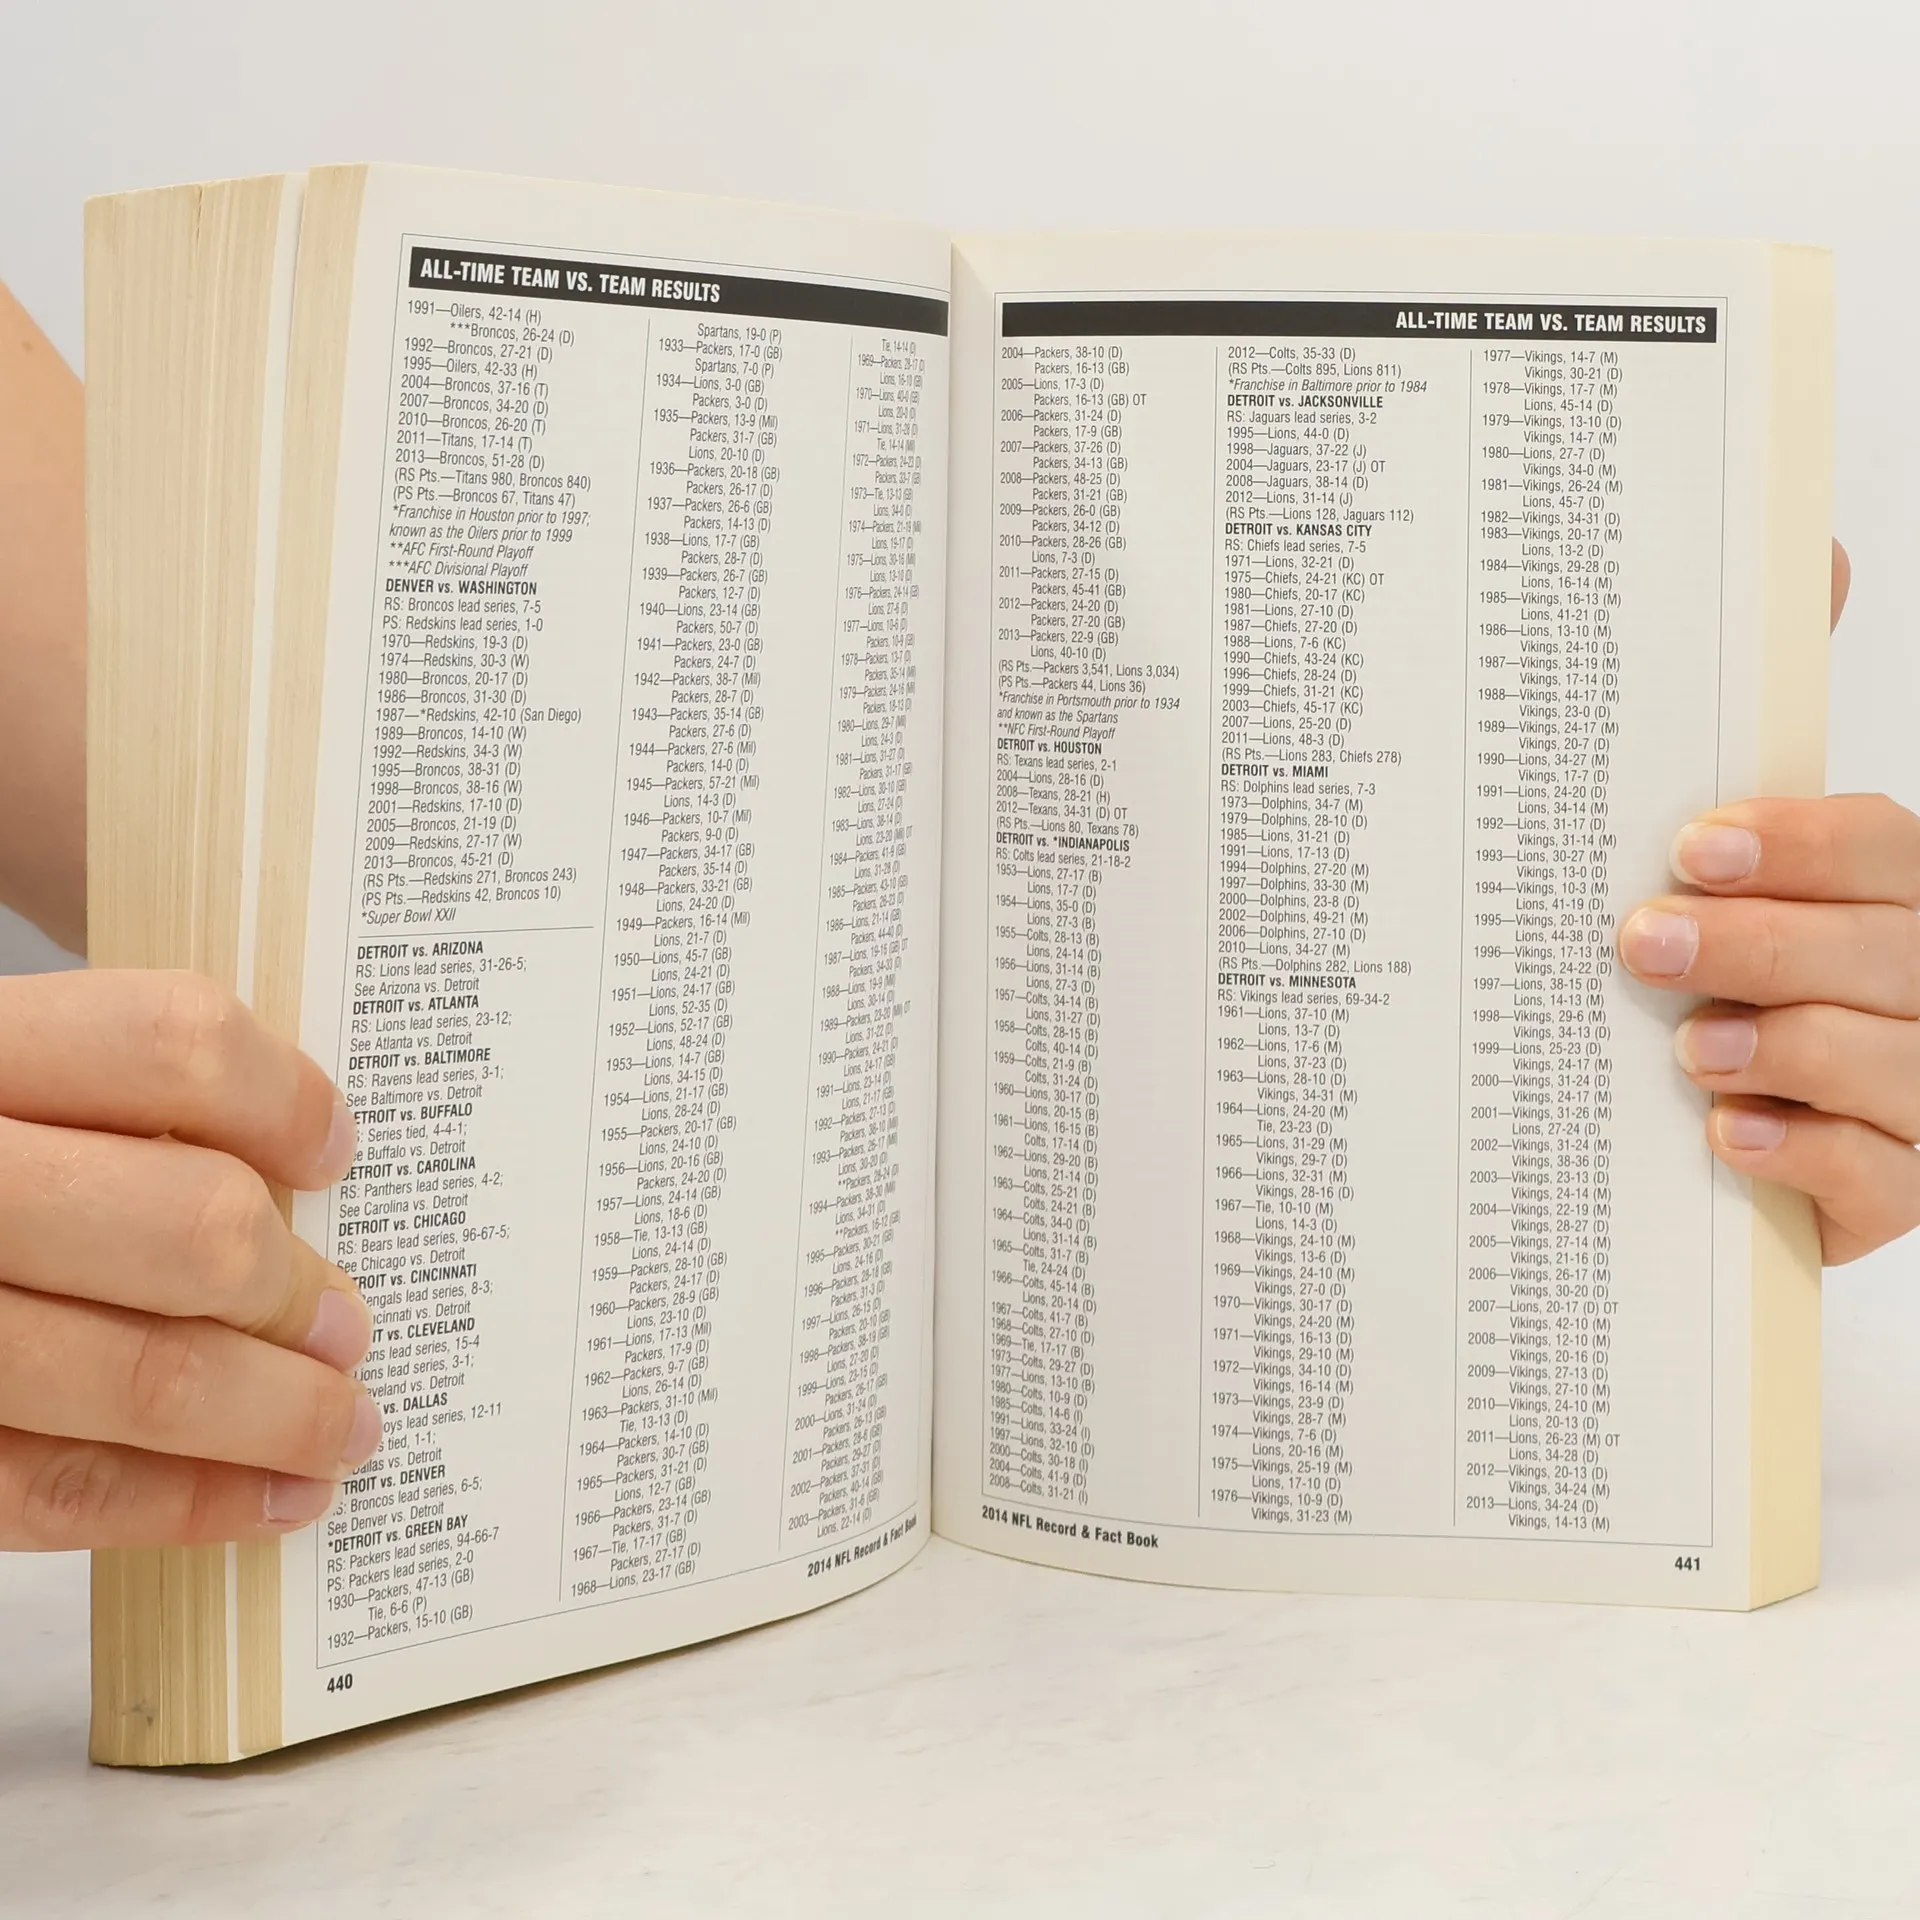 ALL-TIME TEAM VS. TEAM RESULTS
1991—Oilers, 42-14 (H)
***Broncos, 26-24 (D)
1992—Broncos, 27-21 (D)
1995—Oilers, 42-33 (H)
2004—Broncos, 37-16 (T)
2007—Broncos, 34-20 (D)
2010—Broncos, 26-20 (T)
2011—Titans, 17-14 (T)
2013—Broncos, 51-28 (D)
(RS Pts.—Titans 980, Broncos 840)
(PS Pts.—Broncos 67, Titans 47)
*Franchise in Houston prior to 1997;
known as the Oilers prior to 1999
**AFC First-Round Playoff
***AFC Divisional Playoff
DENVER vs. WASHINGTON
RS: Broncos lead series, 7-5
PS: Redskins lead series, 1-0
1970—Redskins, 19-3 (D)
1974—Redskins, 30-3 (W)
1980—Broncos, 20-17 (D)
1986—Broncos, 31-30 (D)
1987—*Redskins, 42-10 (San Diego)
1989—Broncos, 14-10 (W)
1992—Redskins, 34-3 (W)
1995—Broncos, 38-31 (D)
1998—Broncos, 38-16 (W)
2001—Redskins, 17-10 (D)
2005—Broncos, 21-19 (D)
2009—Redskins, 27-17 (W)
2013—Broncos, 45-21 (D)
(RS Pts.—Redskins 271, Broncos 243)
(PS Pts.—Redskins 42, Broncos 10)
*Super Bowl XXII
DETROIT vs. ARIZONA
RS: Lions lead series, 31-26-5;
See Arizona vs. Detroit
DETROIT vs. ATLANTA
RS: Lions lead series, 23-12;
See Atlanta vs. Detroit
DETROIT vs. BALTIMORE
RS: Ravens lead series, 3-1;
See Baltimore vs. Detroit
ETROIT vs. BUFFALO
: Series tied, 4-4-1;
e Buffalo vs. Detroit
ETROIT vs. CAROLINA
RS: Panthers lead series, 4-2;
See Carolina vs. Detroit
DETROIT vs. CHICAGO
RS: Bears lead series, 96-67-5;
See Chicago vs. Detroit
TROIT vs. CINCINNATI
engals lead series, 8-3;
cinnati vs. Detroit
IT vs. CLEVELAND
ons lead series, 15-4
ions lead series, 3-1;
eveland vs. Detroit
vs. DALLAS
oys lead series, 12-11
s tied, 1-1;
allas vs. Detroit
TROIT vs. DENVER
: Broncos lead series, 6-5;
See Denver vs. Detroit
*DETROIT vs. GREEN BAY
RS: Packers lead series, 94-66-7
PS: Packers lead series, 2-0
1930—Packers, 47-13 (GB)
Tie, 6-6 (P)
1932—Packers, 15-10 (GB)
Spartans, 19-0 (P)
1933—Packers, 17-0 (GB)
Spartans, 7-0 (P)
1934—Lions, 3-0 (GB)
Packers, 3-0 (D)
1935—Packers, 13-9 (Mil)
Packers, 31-7 (GB)
Lions, 20-10 (D)
1936—Packers, 20-18 (GB)
Packers, 26-17 (D)
1937—Packers, 26-6 (GB)
Packers, 14-13 (D)
1938—Lions, 17-7 (GB)
Packers, 28-7 (D)
1939—Packers, 26-7 (GB)
Packers, 12-7 (D)
1940—Lions, 23-14 (GB)
Packers, 50-7 (D)
1941—Packers, 23-0 (GB)
Packers, 24-7 (D)
1942—Packers, 38-7 (Mil)
Packers, 28-7 (D)
1943—Packers, 35-14 (GB)
Packers, 27-6 (D)
1944—Packers, 27-6 (Mil)
Packers, 14-0 (D)
1945—Packers, 57-21 (Mil)
Lions, 14-3 (D)
1946—Packers, 10-7 (Mil)
Packers, 9-0 (D)
1947—Packers, 34-17 (GB)
Packers, 35-14 (D)
1948—Packers, 33-21 (GB)
Lions, 24-20 (D)
1949—Packers, 16-14 (Mil)
Lions, 21-7 (D)
1950—Lions, 45-7 (GB)
Lions, 24-21 (D)
1951—Lions, 24-17 (GB)
Lions, 52-35 (D)
1952—Lions, 52-17 (GB)
Lions, 48-24 (D)
1953—Lions, 14-7 (GB)
Lions, 34-15 (D)
1954—Lions, 21-17 (GB)
Lions, 28-24 (D)
1955—Packers, 20-17 (GB)
Lions, 24-10 (D)
1956—Lions, 20-16 (GB)
Packers, 24-20 (D)
1957—Lions, 24-14 (GB)
Lions, 18-6 (D)
1958—Tie, 13-13 (GB)
Lions, 24-14 (D)
1959—Packers, 28-10 (GB)
Packers, 24-17 (D)
1960—Packers, 28-9 (GB)
Lions, 23-10 (D)
1961—Lions, 17-13 (Mil)
Packers, 17-9 (D)
1962—Packers, 9-7 (GB)
Lions, 26-14 (D)
1963—Packers, 31-10 (Mil)
Tie, 13-13 (D)
1964—Packers, 14-10 (D)
Packers, 30-7 (GB)
1965—Packers, 31-21 (D)
Lions, 12-7 (GB)
1966—Packers, 23-14 (GB)
Packers, 31-7 (D)
1967—Tie, 17-17 (GB)
Packers, 27-17 (D)
1968—Lions, 23-17 (GB)
Tie, 14-14 (D)
1969—Packers, 28-17 (D)
Lions, 16-10 (GB)
1970—Lions, 40-0 (GB)
Lions, 20-0 (D)
1971—Lions, 31-28 (D)
Tie, 14-14 (Mil)
1972—Packers, 24-23 (D)
Packers, 33-7 (GB)
1973—Tie, 13-13 (GB)
Lions, 34-0 (D)
1974—Packers, 21-19 (Mil)
Lions, 19-17 (D)
1975—Lions, 30-16 (Mil)
Lions, 13-10 (D)
1976—Packers, 24-14 (GB)
Lions, 27-6 (D)
1977—Lions, 10-6 (D)
Packers, 10-9 (GB)
1978—Packers, 13-7 (D)
Packers, 35-14 (Mil)
1979—Packers, 24-16 (Mil)
Packers, 18-13 (D)
1980—Lions, 29-7 (Mil)
Lions, 24-3 (D)
1981—Lions, 31-27 (D)
Packers, 31-17 (GB)
1982—Lions, 30-10 (GB)
Lions, 27-24 (D)
1983—Lions, 38-14 (D)
Lions, 23-20 (Mil) OT
1984—Packers, 41-9 (GB)
Lions, 31-28 (D)
1985—Packers, 43-10 (GB)
Packers, 26-23 (D)
1986—Lions, 21-14 (GB)
Packers, 44-40 (D)
1987—Lions, 19-16 (GB) OT
Packers, 34-33 (D)
1988—Lions, 19-9 (Mil)
Lions, 30-14 (D)
1989—Packers, 23-20 (Mil) OT
Lions, 31-22 (D)
1990—Packers, 24-21 (D)
Lions, 24-17 (GB)
1991—Lions, 23-14 (D)
Lions, 21-17 (GB)
1992—Packers, 27-13 (D)
Packers, 38-10 (Mil)
1993—Packers, 26-17 (Mil)
Lions, 30-20 (D)
**Packers, 28-24 (D)
1994—Packers, 38-30 (Mil)
Lions, 34-31 (D)
**Packers, 16-12 (GB)
1995—Packers, 30-21 (GB)
Lions, 24-16 (D)
1996—Packers, 28-18 (GB)
Packers, 31-3 (D)
1997—Lions, 26-15 (D)
Packers, 20-10 (GB)
1998—Packers, 38-19 (GB)
Lions, 27-20 (D)
1999—Lions, 23-15 (D)
Packers, 26-17 (GB)
2000—Lions, 31-24 (D)
Packers, 26-13 (GB)
2001—Packers, 28-6 (GB)
Packers, 29-27 (D)
2002—Packers, 37-31 (D)
Packers, 40-14 (GB)
2003—Packers, 31-6 (GB)
Lions, 22-14 (D)
2014 NFL Record & Fact Book
440
ALL-TIME TEAM VS. TEAM RESULTS
2004—Packers, 38-10 (D)
Packers, 16-13 (GB)
2005—Lions, 17-3 (D)
Packers, 16-13 (GB) OT
2006—Packers, 31-24 (D)
Packers, 17-9 (GB)
2007—Packers, 37-26 (D)
Packers, 34-13 (GB)
2008—Packers, 48-25 (D)
Packers, 31-21 (GB)
2009—Packers, 26-0 (GB)
Packers, 34-12 (D)
2010—Packers, 28-26 (GB)
Lions, 7-3 (D)
2011—Packers, 27-15 (D)
Packers, 45-41 (GB)
2012—Packers, 24-20 (D)
Packers, 27-20 (GB)
2013—Packers, 22-9 (GB)
Lions, 40-10 (D)
(RS Pts.—Packers 3,541, Lions 3,034)
(PS Pts.—Packers 44, Lions 36)
*Franchise in Portsmouth prior to 1934
and known as the Spartans
**NFC First-Round Playoff
DETROIT vs. HOUSTON
RS: Texans lead series, 2-1
2004—Lions, 28-16 (D)
2008—Texans, 28-21 (H)
2012—Texans, 34-31 (D) OT
(RS Pts.—Lions 80, Texans 78)
DETROIT vs. *INDIANAPOLIS
RS: Colts lead series, 21-18-2
1953—Lions, 27-17 (B)
Lions, 17-7 (D)
1954—Lions, 35-0 (D)
Lions, 27-3 (B)
1955—Colts, 28-13 (B)
Lions, 24-14 (D)
1956—Lions, 31-14 (B)
Lions, 27-3 (D)
1957—Colts, 34-14 (B)
Lions, 31-27 (D)
1958—Colts, 28-15 (B)
Colts, 40-14 (D)
1959—Colts, 21-9 (B)
Colts, 31-24 (D)
1960—Lions, 30-17 (D)
Lions, 20-15 (B)
1961—Lions, 16-15 (B)
Colts, 17-14 (D)
1962—Lions, 29-20 (B)
Lions, 21-14 (D)
1963—Colts, 25-21 (D)
Colts, 24-21 (B)
1964—Colts, 34-0 (D)
Lions, 31-14 (B)
1965—Colts, 31-7 (B)
Tie, 24-24 (D)
1966—Colts, 45-14 (B)
Lions, 20-14 (D)
1967—Colts, 41-7 (B)
1968—Colts, 27-10 (D)
1969—Tie, 17-17 (B)
1973—Colts, 29-27 (D)
1977—Lions, 13-10 (B)
1980—Colts, 10-9 (D)
1985—Colts, 14-6 (I)
1991—Lions, 33-24 (I)
1997—Lions, 32-10 (D)
2000—Colts, 30-18 (I)
2004—Colts, 41-9 (D)
2008—Colts, 31-21 (I)
2012—Colts, 35-33 (D)
(RS Pts.—Colts 895, Lions 811)
*Franchise in Baltimore prior to 1984
DETROIT vs. JACKSONVILLE
RS: Jaguars lead series, 3-2
1995—Lions, 44-0 (D)
1998—Jaguars, 37-22 (J)
2004—Jaguars, 23-17 (J) OT
2008—Jaguars, 38-14 (D)
2012—Lions, 31-14 (J)
(RS Pts.—Lions 128, Jaguars 112)
DETROIT vs. KANSAS CITY
RS: Chiefs lead series, 7-5
1971—Lions, 32-21 (D)
1975—Chiefs, 24-21 (KC) OT
1980—Chiefs, 20-17 (KC)
1981—Lions, 27-10 (D)
1987—Chiefs, 27-20 (D)
1988—Lions, 7-6 (KC)
1990—Chiefs, 43-24 (KC)
1996—Chiefs, 28-24 (D)
1999—Chiefs, 31-21 (KC)
2003—Chiefs, 45-17 (KC)
2007—Lions, 25-20 (D)
2011—Lions, 48-3 (D)
(RS Pts.—Lions 283, Chiefs 278)
DETROIT vs. MIAMI
RS: Dolphins lead series, 7-3
1973—Dolphins, 34-7 (M)
1979—Dolphins, 28-10 (D)
1985—Lions, 31-21 (D)
1991—Lions, 17-13 (D)
1994—Dolphins, 27-20 (M)
1997—Dolphins, 33-30 (M)
2000—Dolphins, 23-8 (D)
2002—Dolphins, 49-21 (M)
2006—Dolphins, 27-10 (D)
2010—Lions, 34-27 (M)
(RS Pts.—Dolphins 282, Lions 188)
DETROIT vs. MINNESOTA
RS: Vikings lead series, 69-34-2
1961—Lions, 37-10 (M)
Lions, 13-7 (D)
1962—Lions, 17-6 (M)
Lions, 37-23 (D)
1963—Lions, 28-10 (D)
Vikings, 34-31 (M)
1964—Lions, 24-20 (M)
Tie, 23-23 (D)
1965—Lions, 31-29 (M)
Vikings, 29-7 (D)
1966—Lions, 32-31 (M)
Vikings, 28-16 (D)
1967—Tie, 10-10 (M)
Lions, 14-3 (D)
1968—Vikings, 24-10 (M)
Vikings, 13-6 (D)
1969—Vikings, 24-10 (M)
Vikings, 27-0 (D)
1970—Vikings, 30-17 (D)
Vikings, 24-20 (M)
1971—Vikings, 16-13 (D)
Vikings, 29-10 (M)
1972—Vikings, 34-10 (D)
Vikings, 16-14 (M)
1973—Vikings, 23-9 (D)
Vikings, 28-7 (M)
1974—Vikings, 7-6 (D)
Lions, 20-16 (M)
1975—Vikings, 25-19 (M)
Lions, 17-10 (D)
1976—Vikings, 10-9 (D)
Vikings, 31-23 (M)
1977—Vikings, 14-7 (M)
Vikings, 30-21 (D)
1978—Vikings, 17-7 (M)
Lions, 45-14 (D)
1979—Vikings, 13-10 (D)
Vikings, 14-7 (M)
1980—Lions, 27-7 (D)
Vikings, 34-0 (M)
1981—Vikings, 26-24 (M)
Lions, 45-7 (D)
1982—Vikings, 34-31 (D)
1983—Vikings, 20-17 (M)
Lions, 13-2 (D)
1984—Vikings, 29-28 (D)
Lions, 16-14 (M)
1985—Vikings, 16-13 (M)
Lions, 41-21 (D)
1986—Lions, 13-10 (M)
Vikings, 24-10 (D)
1987—Vikings, 34-19 (M)
Vikings, 17-14 (D)
1988—Vikings, 44-17 (M)
Vikings, 23-0 (D)
1989—Vikings, 24-17 (M)
Vikings, 20-7 (D)
1990—Lions, 34-27 (M)
Vikings, 17-7 (D)
1991—Lions, 24-20 (D)
Lions, 34-14 (M)
1992—Lions, 31-17 (D)
Vikings, 31-14 (M)
1993—Lions, 30-27 (M)
Vikings, 13-0 (D)
1994—Vikings, 10-3 (M)
Lions, 41-19 (D)
1995—Vikings, 20-10 (M)
Lions, 44-38 (D)
1996—Vikings, 17-13 (M)
Vikings, 24-22 (D)
1997—Lions, 38-15 (D)
Lions, 14-13 (M)
1998—Vikings, 29-6 (M)
Vikings, 34-13 (D)
1999—Lions, 25-23 (D)
Vikings, 24-17 (M)
2000—Vikings, 31-24 (D)
Vikings, 24-17 (M)
2001—Vikings, 31-26 (M)
Lions, 27-24 (D)
2002—Vikings, 31-24 (M)
Vikings, 38-36 (D)
2003—Vikings, 23-13 (D)
Vikings, 24-14 (M)
2004—Vikings, 22-19 (M)
Vikings, 28-27 (D)
2005—Vikings, 27-14 (M)
Vikings, 21-16 (D)
2006—Vikings, 26-17 (M)
Vikings, 30-20 (D)
2007—Lions, 20-17 (D) OT
Vikings, 42-10 (M)
2008—Vikings, 12-10 (M)
Vikings, 20-16 (D)
2009—Vikings, 27-13 (D)
Vikings, 27-10 (M)
2010—Vikings, 24-10 (M)
Lions, 20-13 (D)
2011—Lions, 26-23 (M) OT
Lions, 34-28 (D)
2012—Vikings, 20-13 (D)
Vikings, 34-24 (M)
2013—Lions, 34-24 (D)
Vikings, 14-13 (M)
2014 NFL Record & Fact Book
441